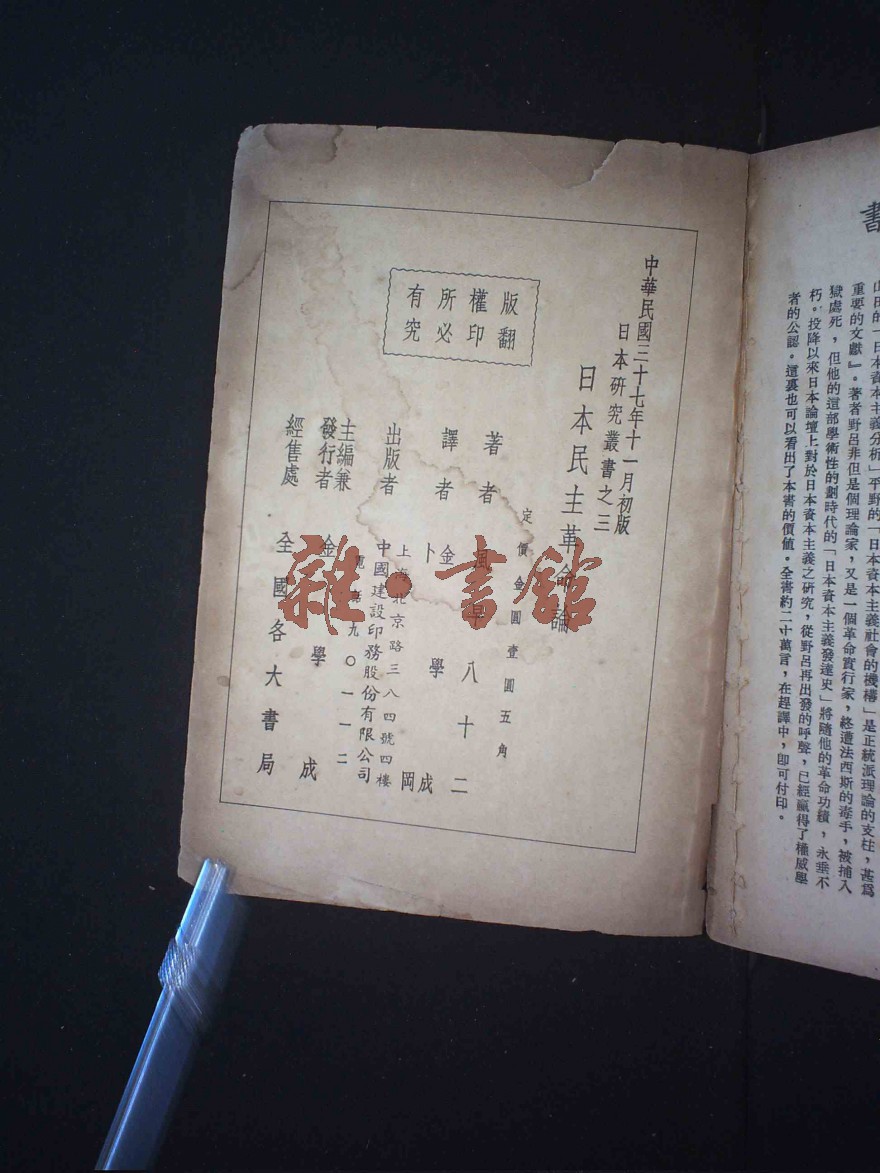 書
山田的「日本資本主義分析」平野的「日本資本主義社會的機構」是正統派理論的支柱，甚爲
重要的文獻』。著者野呂非但是個理論家，又是一個革命實行家，終遭法西斯的毒手，被捕入
獄處死，但他的這部學術性的劃時代的「日本資本主義發達史」將隨他的革命功績，永垂不
朽。投降以來日本論壇上對於日本資本主義之研究，從野呂再出發的呼聲，已經贏得了權威學
者的公認。這裏也可以看出了本書的價值。全書約二十萬言，在趕譯中，卽可付印。
中華民國三十七年十一月初版
日本研究叢書之三
日本民主革命論
定價金圓壹圓五角
版權所有
翻印必究
著者 風早八十二
譯者 金學成
卜岡
出版者 中國建設印務股份有限公司
上海北京路三八四號四樓
電話九〇一一二
主編兼
發行者 金學成
經售處 全國各大書局
雜·書館